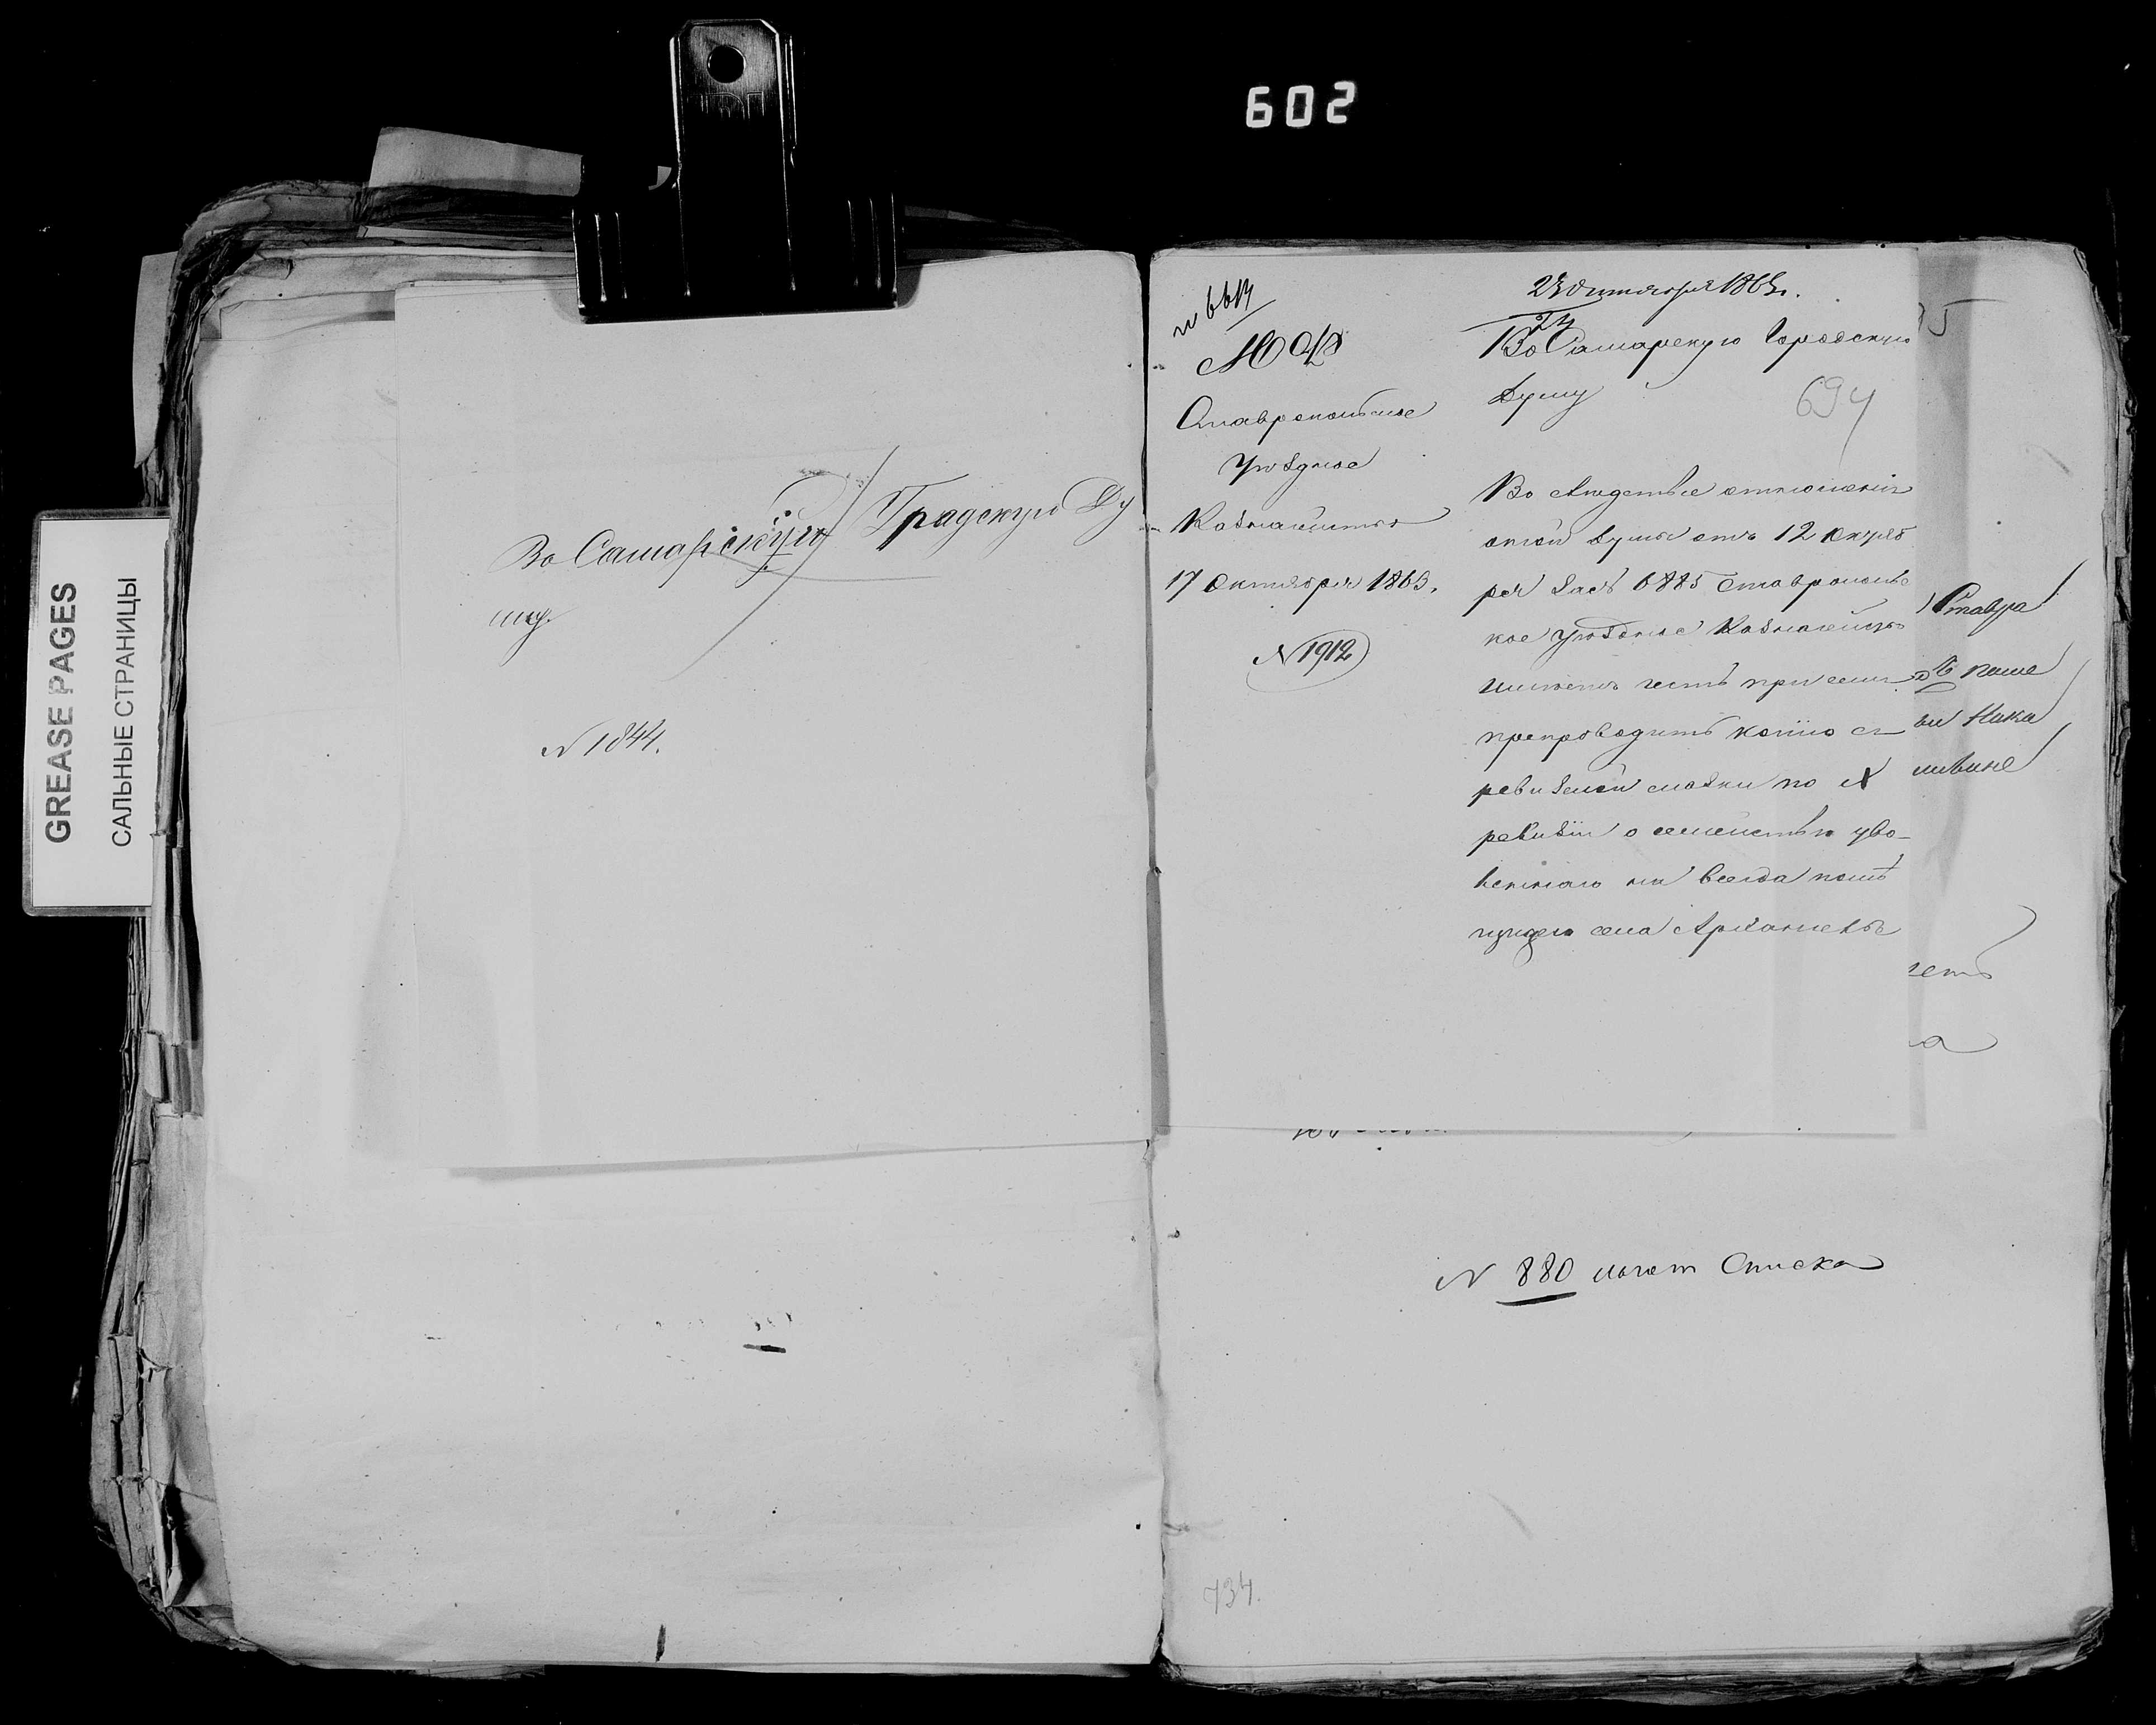 602
GREASE PAGES
САЛЬНЫЕ СТРАНИЦЫ
Во Самарскую Градскую Ду
му.
N 1844.
М Ф
Ставропольское
Уѣздное
Казначейство
17 Октября 1863.
N 1912
23 Октября 1863 г.
24
Во Самарскую Городскую
Думу
694
Во слѣдствіе отношенія
оной Думы отъ 12 Октяб
ря за № 6885 Ставропольс
кое Уѣздное Казначейство
имѣетъ честь при семъ
препроводить копію съ
ревизской сказки по X
ревизіи о семействѣ уво-
леннаго на всегда
села Архангельс
5
Ставро
наше
Ника
N 880 Списка
734.